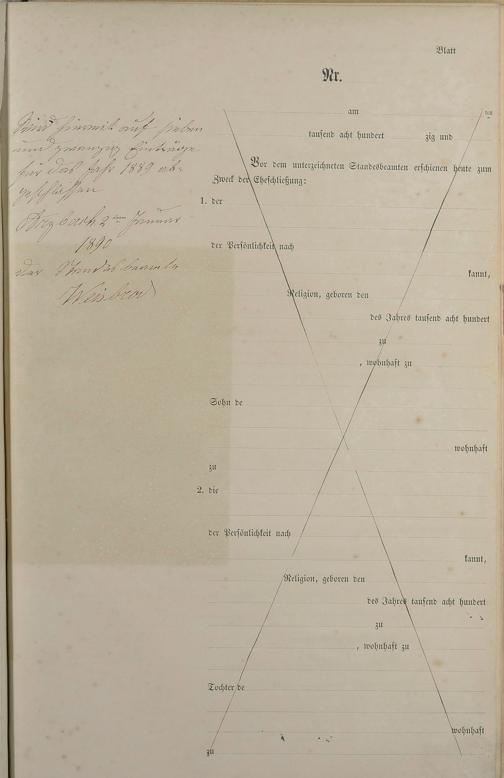 Blatt
Nr.
Wird hiermit auf sieben
und zwanzig Einträge
für das Jahr 1889 ab-
geschlossen
2ten Januar
1890
der Standesbeamte
Weisbrod
am ten
tausend acht hundert zig und
Vor dem unterzeichneten Standesbeamten erschienen heute zum
Zweck der Eheschließung:
1. der
der Persönlichkeit nach
kannt,
Religion, geboren den
des Jahres tausend acht hundert
zu
, wohnhaft zu
Sohn de
wohnhaft
zu
2. die
der Persönlichkeit nach
kannt,
Religion, geboren den
des Jahres tausend acht hundert
zu
, wohnhaft zu
Tochter de
wohnhaft
zu